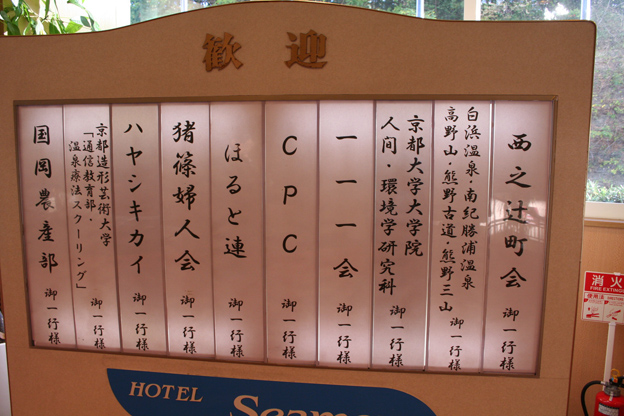 歓迎
西之辻町会 御一行様
白浜温泉・南紀勝浦温泉
高野山・熊野古道・熊野三山 御一行様
京都大学大学院
人间・環境学研究科 御一行様
一一一会 御一行様
CPC 御一行様
ほると連 御一行様
猪篠婦人会 御一行様
ハヤシキカイ 御一行様
京都造形芸術大学
「通信教育部・
温泉療法スクーリング」 御一行様
国岡農産部 御一行様
HOTEL
消火
FIRE EXTING
使用法